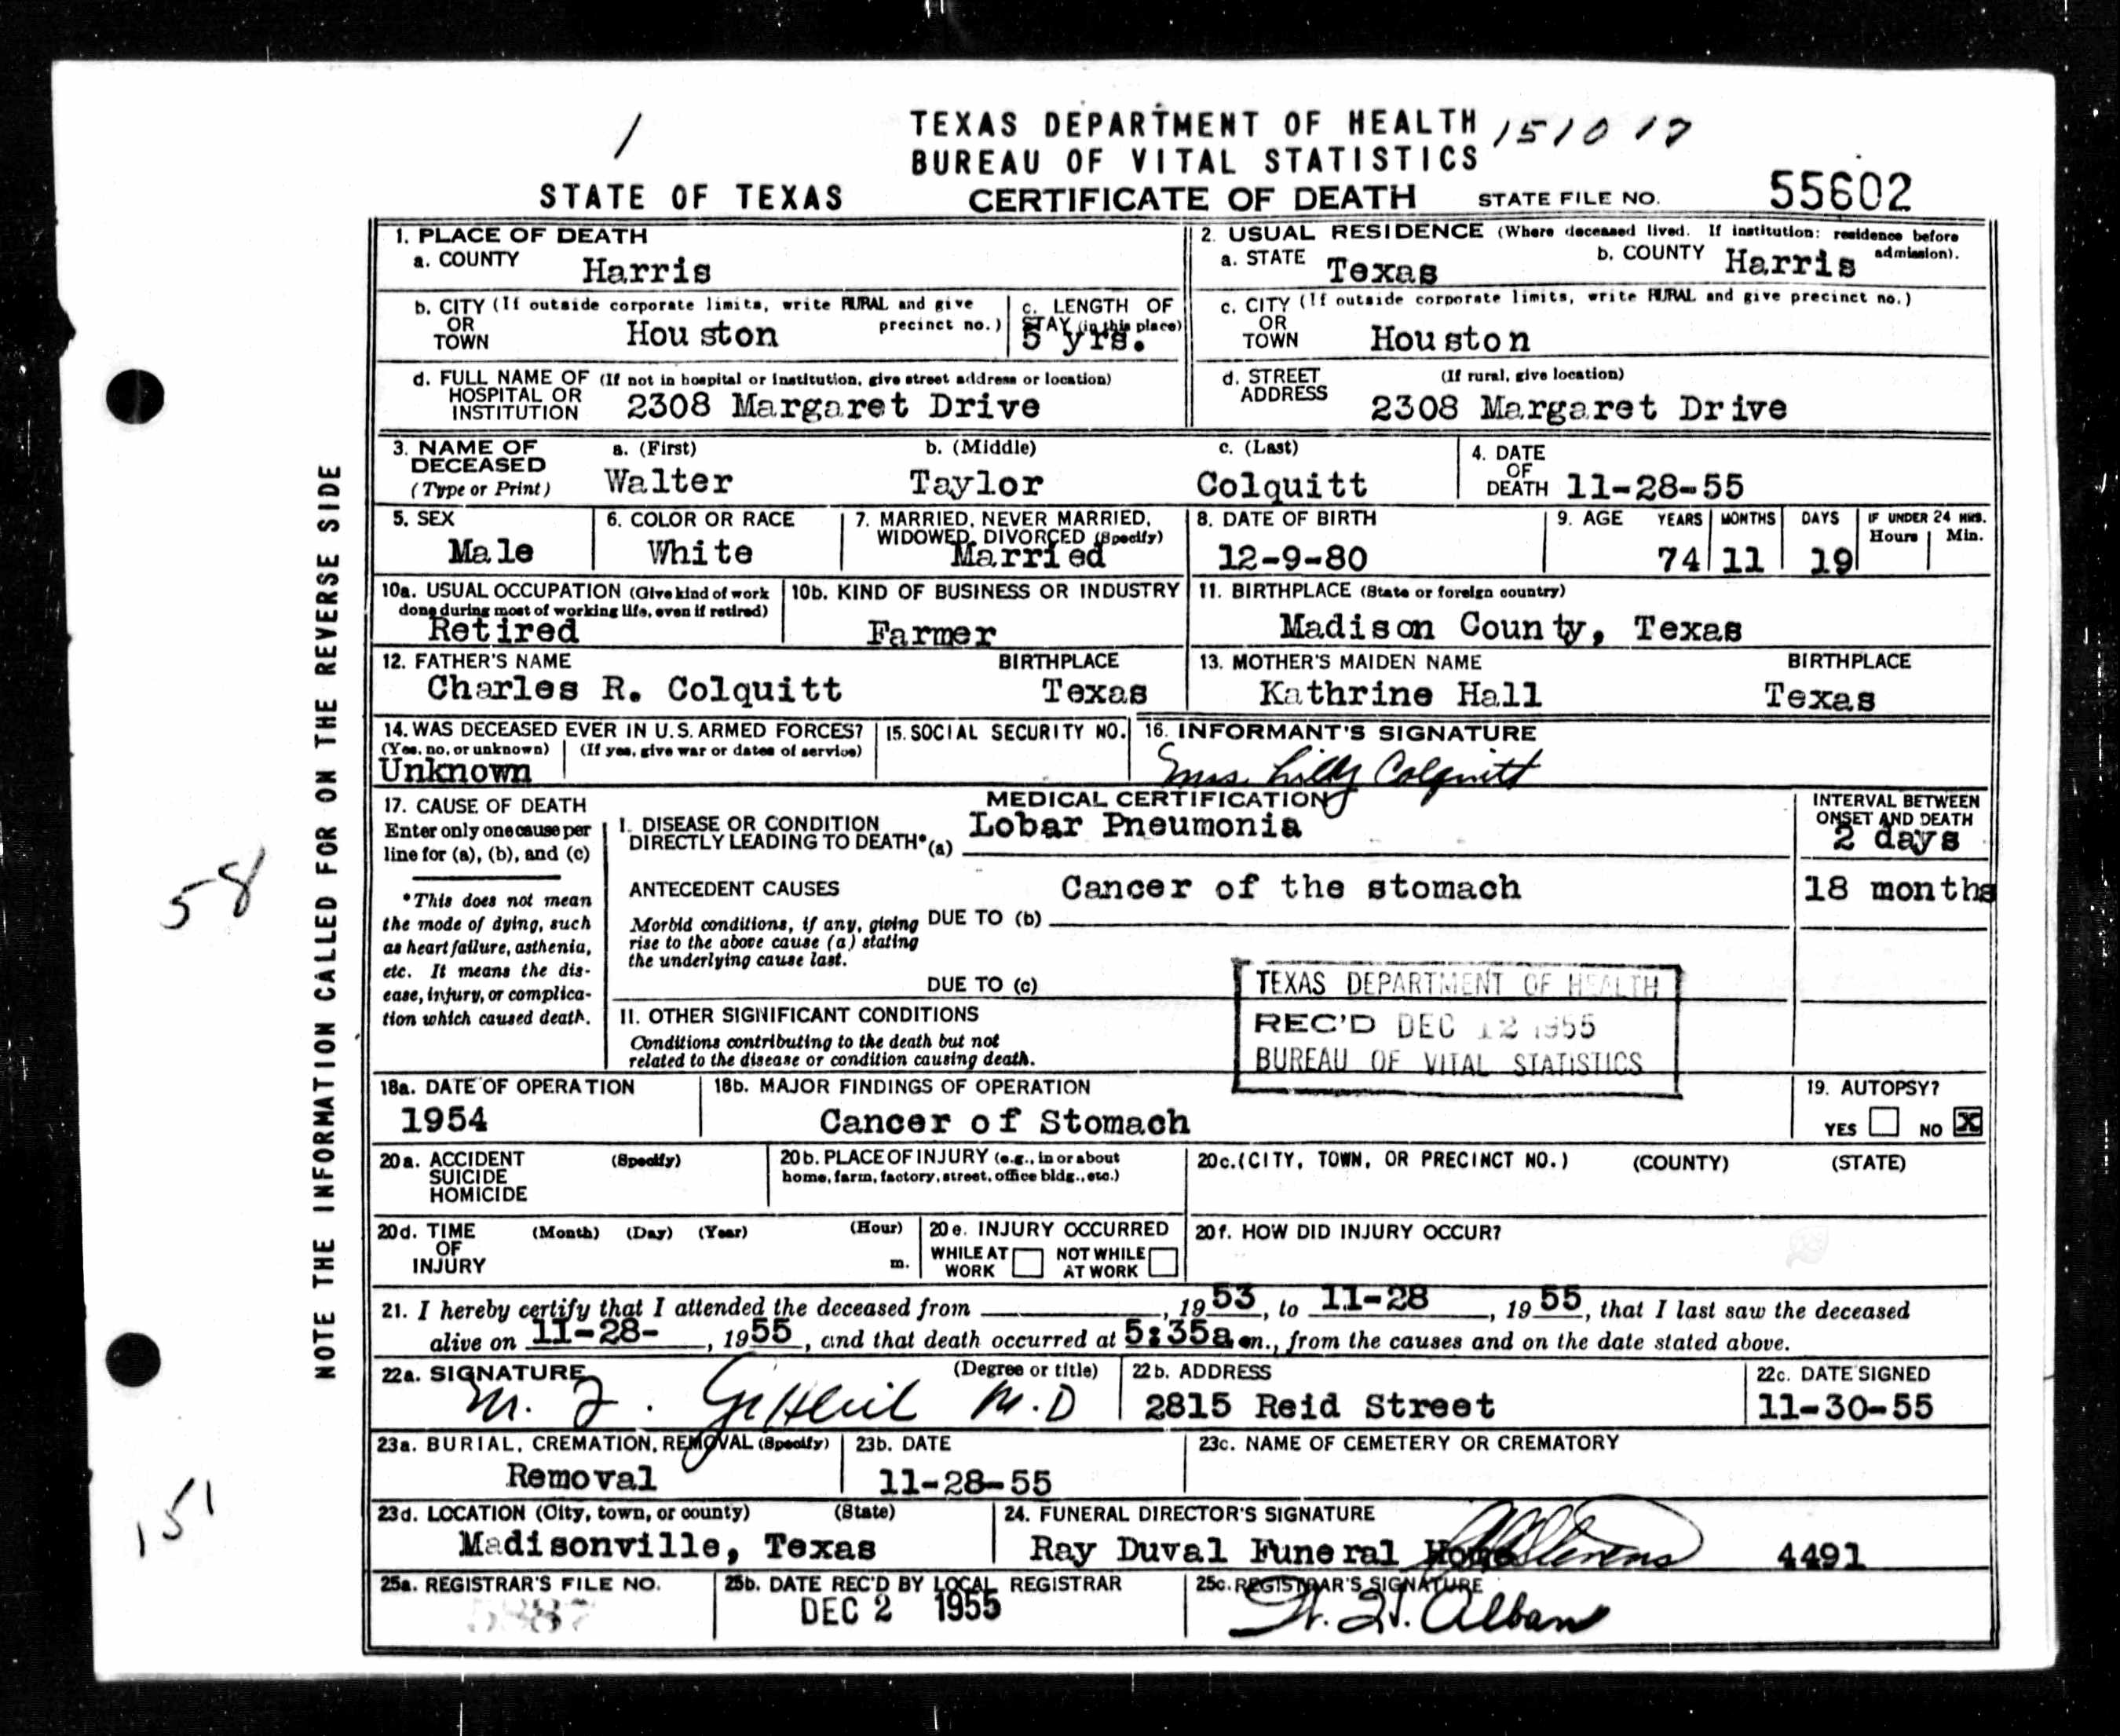 1
TEXAS DEPARTMENT OF HEALTH 151017
BUREAU OF VITAL STATISTICS
STATE OF TEXAS CERTIFICATE OF DEATH STATE FILE NO. 55602
NOTE THE INFORMATION CALLED FOR ON THE REVERSE SIDE
58
151
1. PLACE OF DEATH
a. COUNTY Harris
2. USUAL RESIDENCE (Where deceased lived. If institution: residence before admission).
a. STATE Texas b. COUNTY Harris
b. CITY (If outside corporate limits, write RURAL and give precinct no.)
OR
TOWN Houston
c. LENGTH OF
STAY (in this place)
5 yrs.
c. CITY (If outside corporate limits, write RURAL and give precinct no.)
OR
TOWN Houston
d. FULL NAME OF (If not in hospital or institution, give street address or location)
HOSPITAL OR
INSTITUTION 2308 Margaret Drive
d. STREET (If rural, give location)
ADDRESS 2308 Margaret Drive
3. NAME OF a. (First) b. (Middle) c. (Last)
DECEASED
(Type or Print) Walter Taylor Colquitt
4. DATE
OF
DEATH 11-28-55
5. SEX
Male
6. COLOR OR RACE
White
7. MARRIED, NEVER MARRIED,
WIDOWED, DIVORCED (Specify)
Married
8. DATE OF BIRTH
12-9-80
9. AGE YEARS MONTHS DAYS IF UNDER 24 HRS.
Hours Min.
74 11 19
10a. USUAL OCCUPATION (Give kind of work
done during most of working life, even if retired)
Retired
10b. KIND OF BUSINESS OR INDUSTRY
Farmer
11. BIRTHPLACE (State or foreign country)
Madison County, Texas
12. FATHER'S NAME BIRTHPLACE
Charles R. Colquitt Texas
13. MOTHER'S MAIDEN NAME BIRTHPLACE
Kathrine Hall Texas
14. WAS DECEASED EVER IN U.S. ARMED FORCES?
(Yes, no, or unknown) (If yes, give war or dates of service)
Unknown
15. SOCIAL SECURITY NO.
16. INFORMANT'S SIGNATURE
Mrs. Lilly Colquitt
MEDICAL CERTIFICATION
17. CAUSE OF DEATH
Enter only one cause per
line for (a), (b), and (c)
*This does not mean
the mode of dying, such
as heart failure, asthenia,
etc. It means the dis-
ease, injury, or complica-
tion which caused death.
I. DISEASE OR CONDITION
DIRECTLY LEADING TO DEATH* (a) Lobar Pneumonia
INTERVAL BETWEEN
ONSET AND DEATH
2 days
ANTECEDENT CAUSES
Morbid conditions, if any, giving
rise to the above cause (a) stating
the underlying cause last.
DUE TO (b) Cancer of the stomach
18 months
DUE TO (c)
II. OTHER SIGNIFICANT CONDITIONS
Conditions contributing to the death but not
related to the disease or condition causing death.
TEXAS DEPARTMENT OF HEALTH
REC'D DEC 12 1955
BUREAU OF VITAL STATISTICS
18a. DATE OF OPERATION
1954
18b. MAJOR FINDINGS OF OPERATION
Cancer of Stomach
19. AUTOPSY?
YES NO X
20a. ACCIDENT (Specify)
SUICIDE
HOMICIDE
20b. PLACE OF INJURY (e.g., in or about
home, farm, factory, street, office bldg., etc.)
20c. (CITY, TOWN, OR PRECINCT NO.) (COUNTY) (STATE)
20d. TIME (Month) (Day) (Year) (Hour)
OF
INJURY m.
20e. INJURY OCCURRED
WHILE AT NOT WHILE
WORK AT WORK
20f. HOW DID INJURY OCCUR?
21. I hereby certify that I attended the deceased from , 1953, to 11-28, 1955, that I last saw the deceased
alive on 11-28-, 1955, and that death occurred at 5:35a m., from the causes and on the date stated above.
22a. SIGNATURE (Degree or title)
M. D
22b. ADDRESS
2815 Reid Street
22c. DATE SIGNED
11-30-55
23a. BURIAL, CREMATION, REMOVAL (Specify)
Removal
23b. DATE
11-28-55
23c. NAME OF CEMETERY OR CREMATORY
23d. LOCATION (City, town, or county) (State)
Madisonville, Texas
24. FUNERAL DIRECTOR'S SIGNATURE
Ray Duval Funeral Home 4491
25a. REGISTRAR'S FILE NO.
25b. DATE REC'D BY LOCAL REGISTRAR
DEC 2 1955
25c. REGISTRAR'S SIGNATURE
Alban